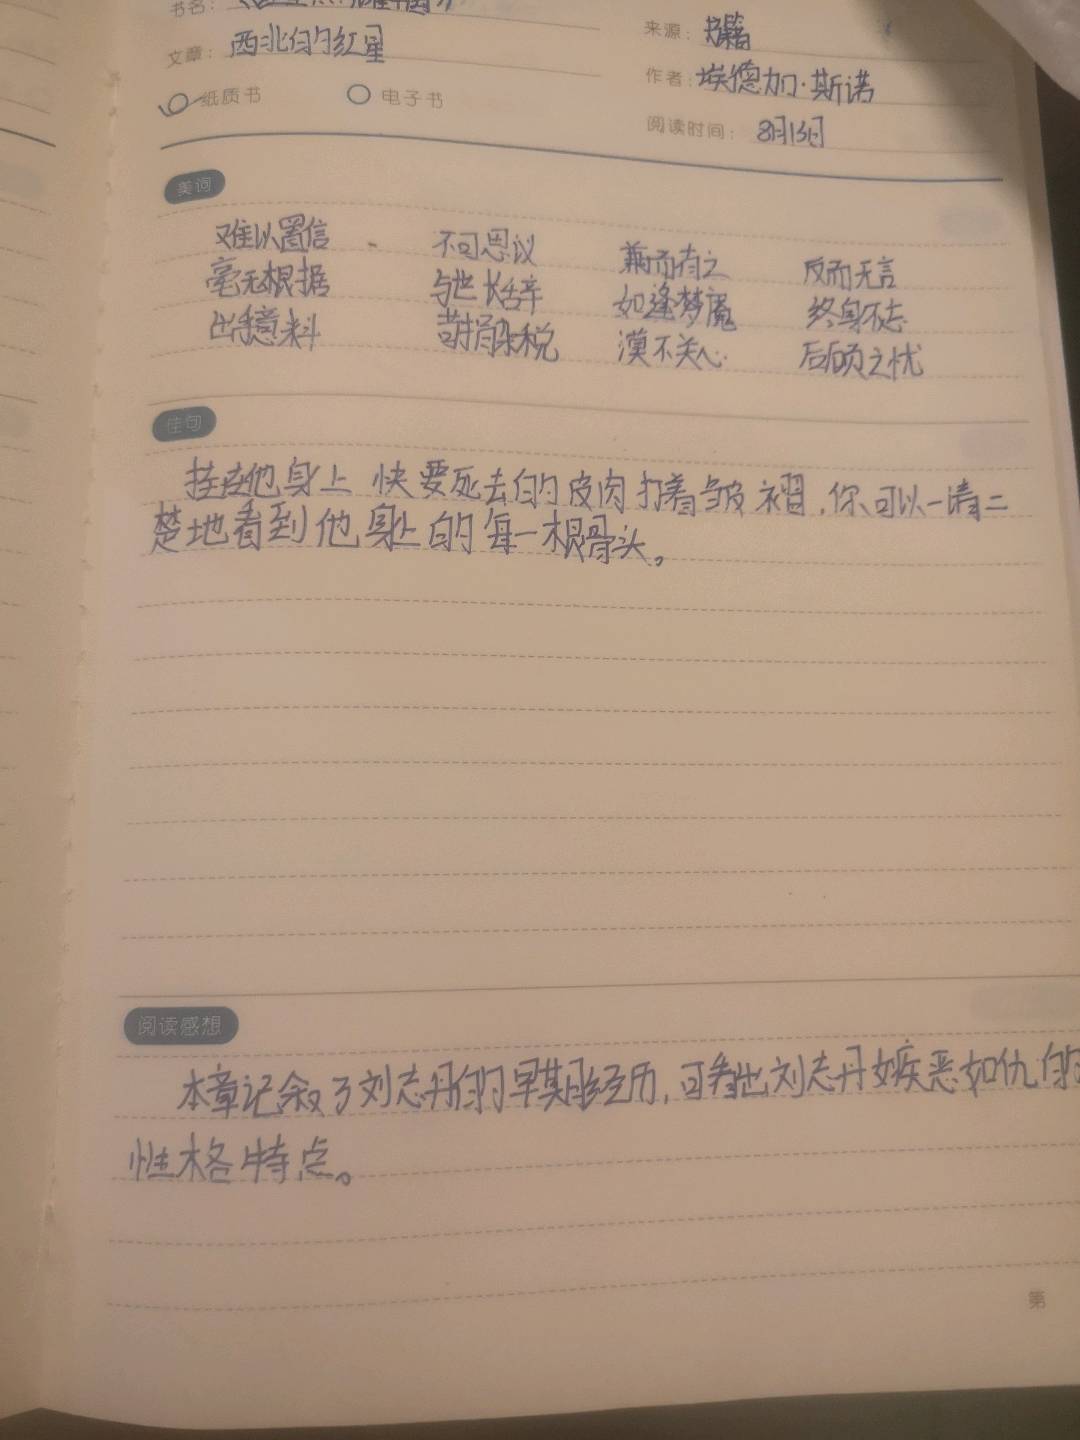 书名：
文章： 西北的红星
来源： 书籍
作者： 埃德加·斯诺
纸质书 电子书
阅读时间： 8月13日
美词
难以置信 不可思议 兼而有之 反而无言
毫无根据 与世长辞 如逢梦魇 终身不忘
出乎意料 苛捐杂税 漠不关心 后顾之忧
佳句
挂在他身上快要死去的皮肉打着皱褶，你可以一清二
楚地看到他身上的每一根骨头。
阅读感想
本章记叙了刘志丹的早期经历，可看出刘志丹嫉恶如仇的
性格特点。
第